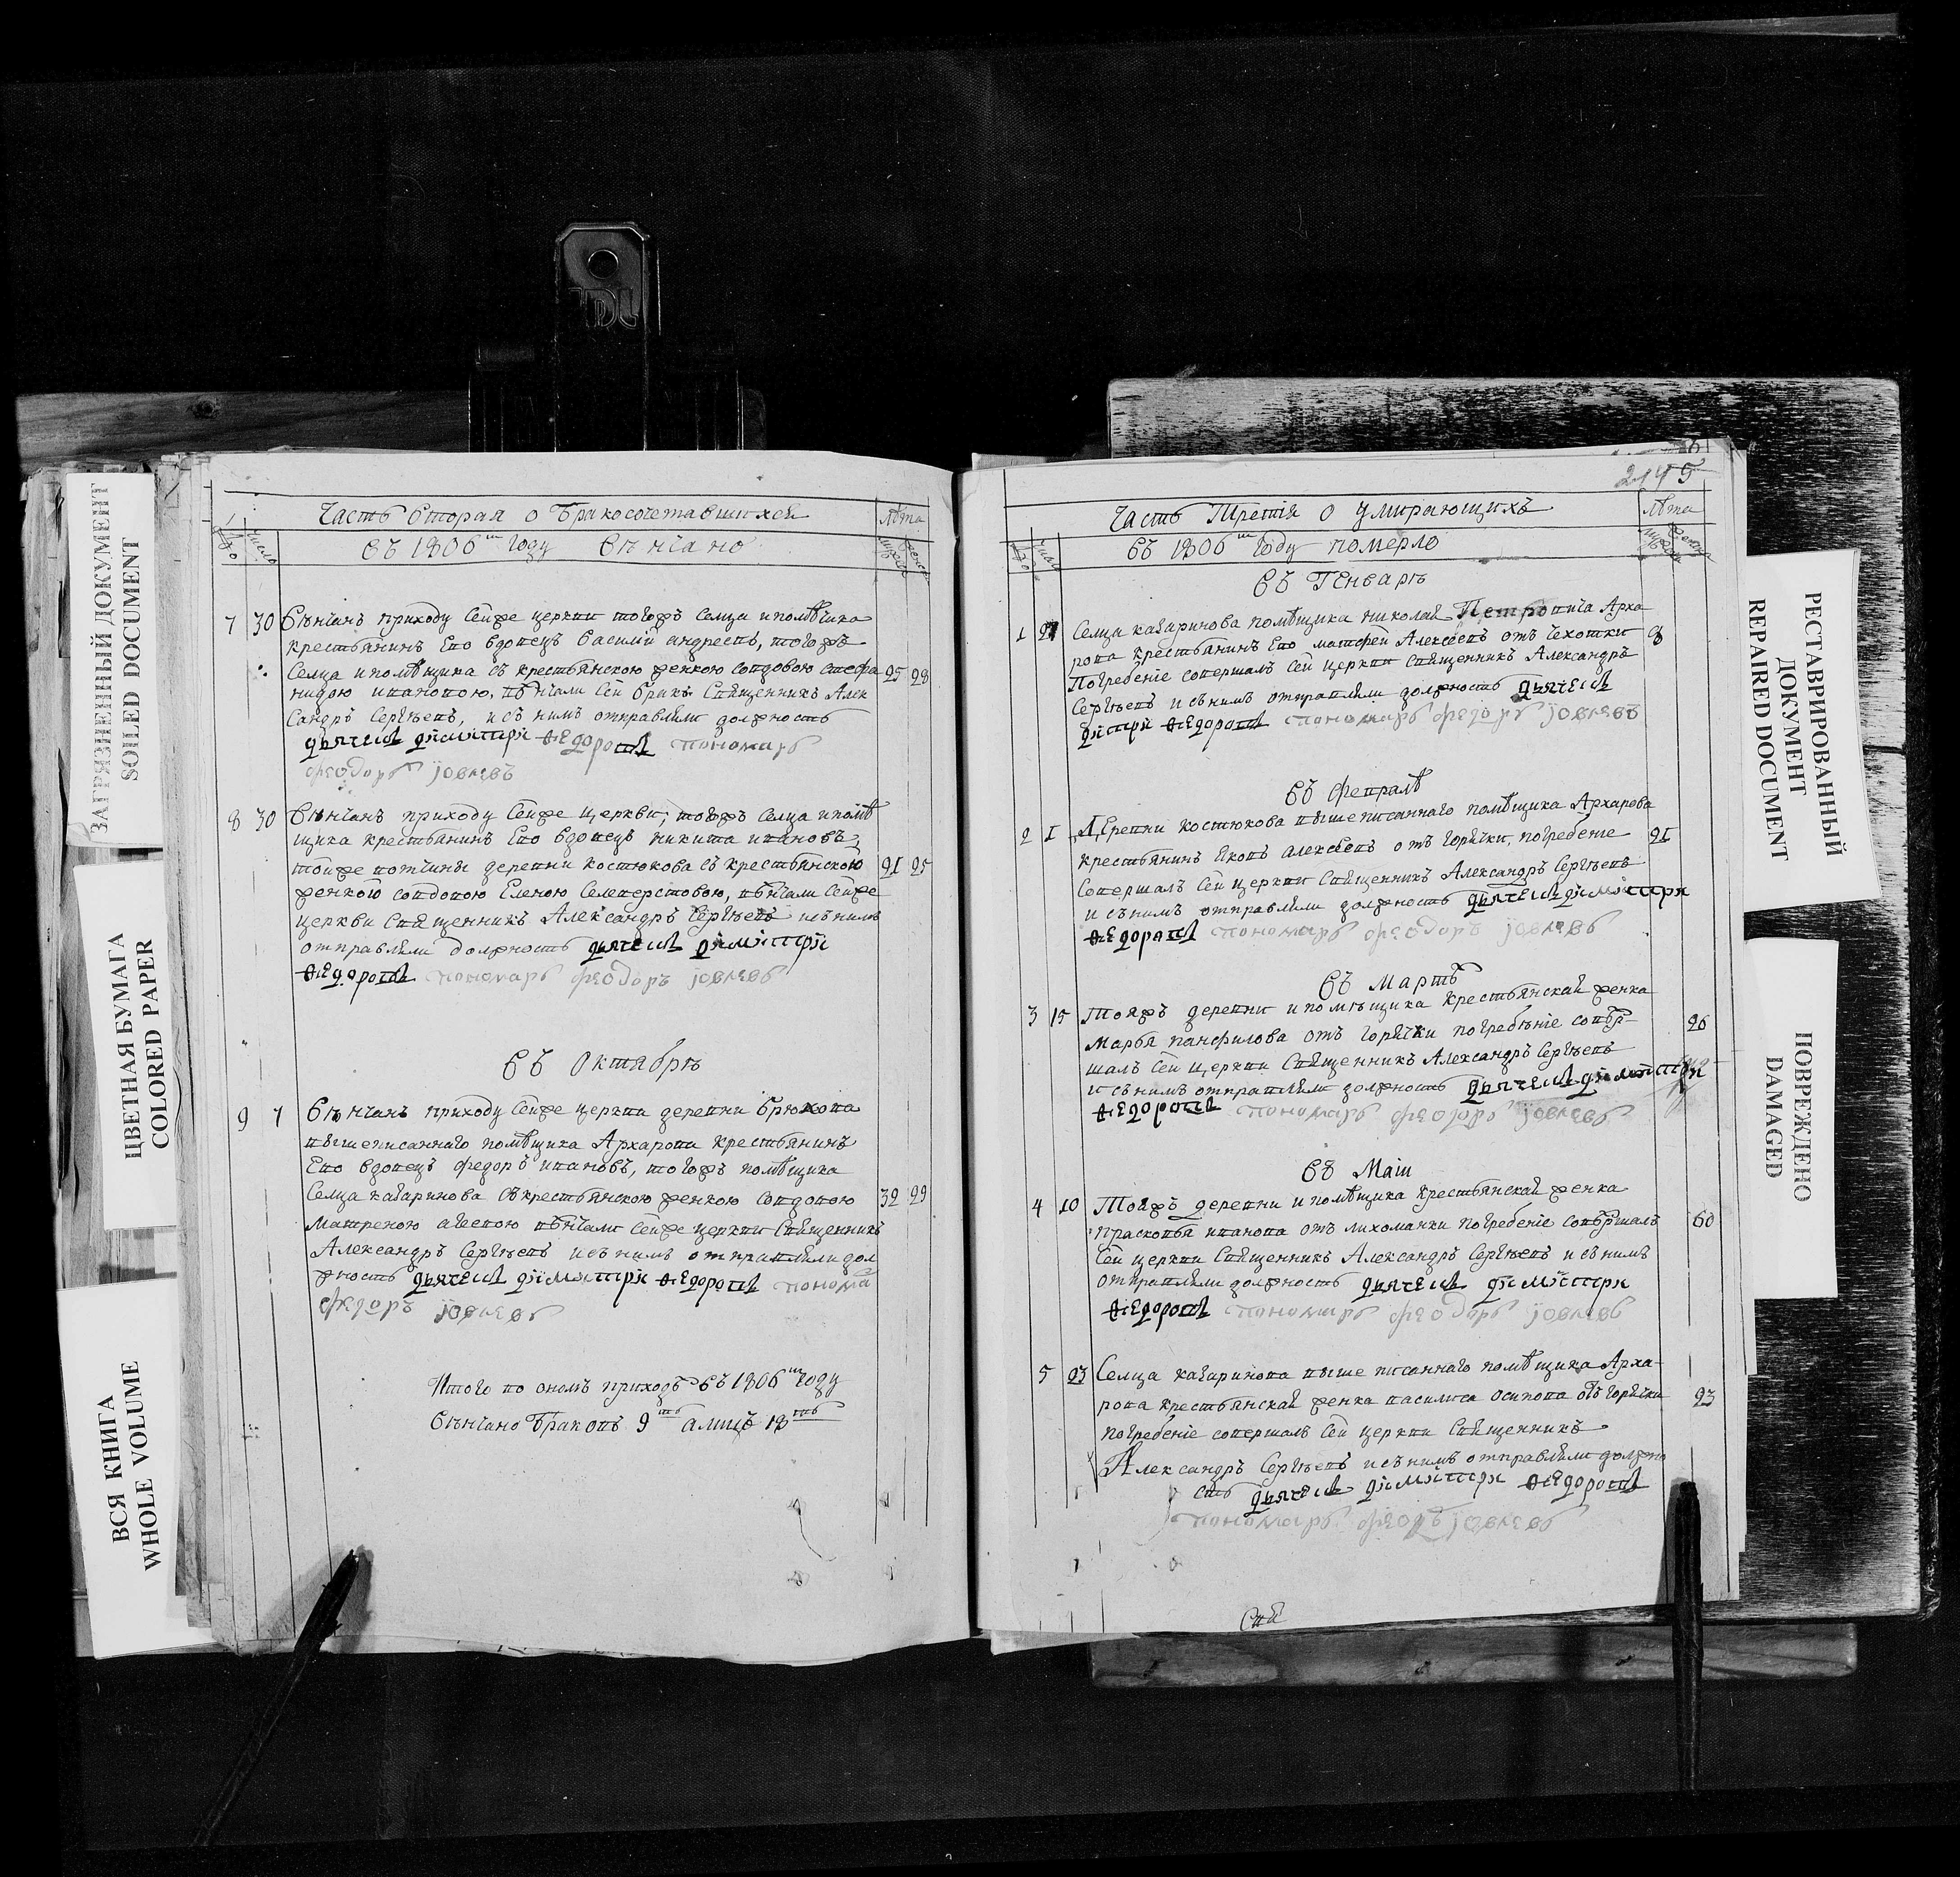 ЗАГРЯЗНЕННЫЙ ДОКУМЕНТ
SOILED DOCUMENT
ЦВЕТНАЯ БУМАГА
COLORED PAPER
ВСЯ КНИГА
WHOLE VOLUME
Часть вторая о бракосочетавшихся
лѣта
число
въ 1806 году вѣнчано
7 30 Вѣнчанъ приходу сейже церкви тогожъ селца и помѣщика
крестьянинъ ево вдовецъ василий андреевъ, тогожъ
селца и помѣщика съ крестьянскою женкою совдовою стефа 25 28
нидою ивановою, вѣнчали сей бракъ священникъ Алек
сандръ Сергѣевъ, и съ нимъ отправляли должность
дьячекъ димитри федоровъ пономарь
феодоръ іовлевъ
8 30 Вѣнчанъ приходу сейже церкви, тогожъ селца и помѣ
щика крестьянинъ ево вдовецъ никита ивановъ,
тойже вотчины деревни костюкова съ крестьянскою 21 25
женкою совдовою Еленою Селеверстовою, вѣнчали сейже
церкви священникъ Александръ Сергѣевъ и съ нимъ
отправляли должность дьячекъ димитри
федоровъ пономарь феодоръ іовлевъ
въ октябрѣ
9 7 Вѣнчанъ приходу сейже церкви деревни брюхова
вышеписаннаго помѣщика Архарова крестьянинъ
Ево вдовецъ федоръ ивановъ, тогожъ помѣщика
селца кагаринова съ крестьянскою женкою совдовою 32 29
матреною вѣнчали сейже церкви священникъ
Александръ Сергѣевъ и съ нимъ отправляли дол
жность дьячекъ димитри федоровъ понома
федоръ іовлевъ
Итого по ономъ приходѣ въ 1806 году
вѣнчано браковъ 9 а лицъ 18
2145
Часть третія о умирающихъ
лѣта
число
въ 1806 году померло
въ генварѣ
1 27 Селца кагаринова помѣщика николая Петровича Арха
рова крестьянинъ ево матфей Алексеевъ отъ чехотки 8
погребеніе совершалъ сей церкви священникъ Александръ
Сергѣевъ и съ нимъ отправляли должность дьячекъ
дитри федоровъ пономарь федоръ іовлевъ
въ февралѣ
2 1 Деревни костюкова выше писаннаго помѣщика Архарова
крестьянинъ яковъ алексеевъ отъ горячки, погребеніе 21
совершалъ сей церкви священникъ Александръ Сергѣевъ
и съ нимъ отправляли должность дьячекъ димитри
федоровъ пономарь феодоръ іовлевъ
въ мартѣ
3 15 тояжъ деревни и помѣщика крестьянская женка
марья панфилова отъ горячки погребѣніе совер- 26
шалъ сей церкви священникъ Александръ Сергѣевъ
и съ нимъ отправляли должность дьячекъ димитри
федоровъ пономарь феодоръ іовлевъ
въ маіи
4 10 тояжъ деревни и помѣщика крестьянская женка
прасковья иванова отъ лихоманки погребеніе совершалъ 60
сей церкви священникъ Александръ Сергѣевъ и съ нимъ
отправляли должность дьячекъ димитри
федоровъ пономарь феодоръ іовлевъ
5 23 Селца кагаринова выше писаннаго помѣщика Арха-
рова крестьянская женка василиса осипова отъ горячки 23
погребеніе совершалъ сей церкви священникъ
Александръ Сергѣевъ и съ нимъ отправляли должно
сть дьячекъ димитри федоровъ
пономарь феодръ іовлевъ
РЕСТАВРИРОВАННЫЙ
ДОКУМЕНТ
REPAIRED DOCUMENT
ПОВРЕЖДЕНО
DAMAGED